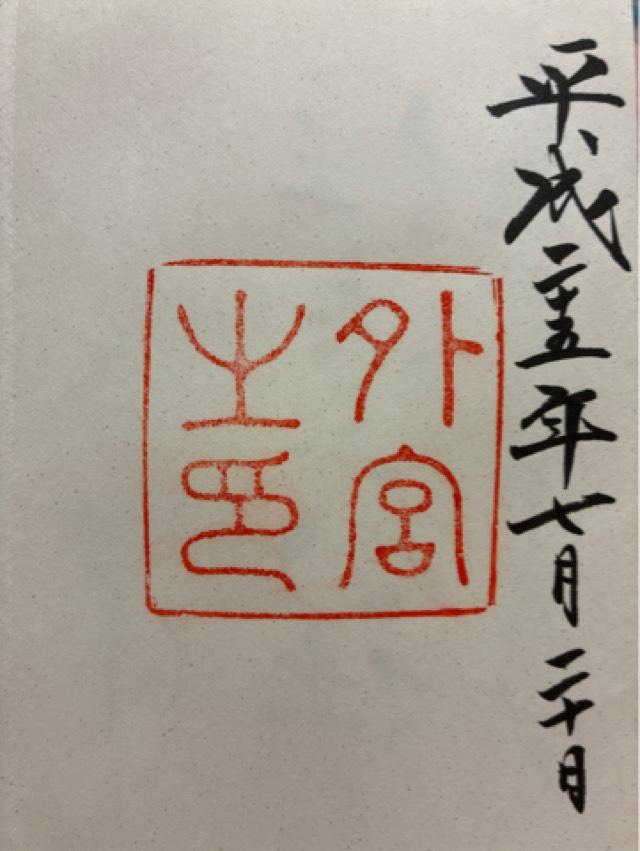 平成二十五年七月二十日
外宮
之印